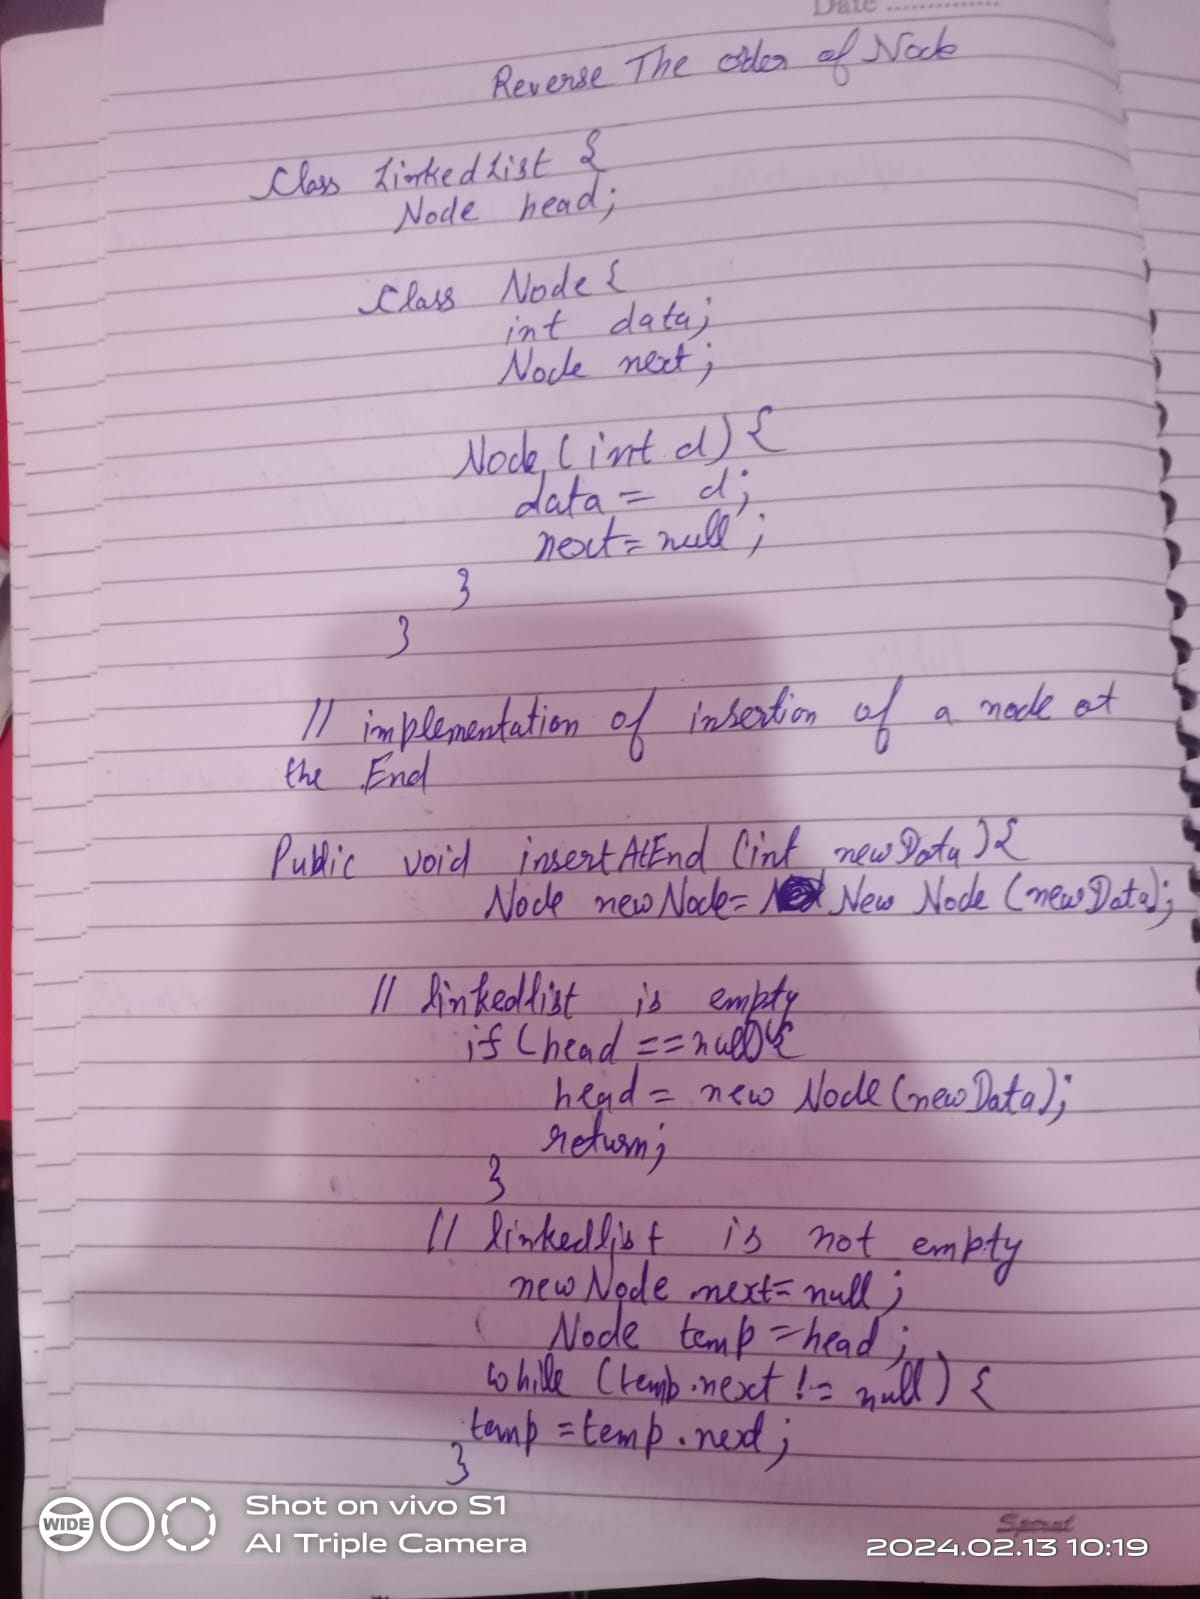 Date ..............
Reverse The order of Node
Class LinkedList {
Node head;
Class Node {
int data;
Node next;
Node (int d) {
data = d;
next = null;
}
}
// implementation of insertion of a node at
the End
Public void insertAtEnd (int newData) {
Node newNode = New Node (newData);
// linkedlist is empty
if (head == null) {
head = new Node (newData);
return;
}
// linkedlist is not empty
newNode.next = null;
Node temp = head;
while (temp.next != null) {
temp = temp.next;
}
WIDE
Shot on vivo S1
AI Triple Camera
2024.02.13 10:19